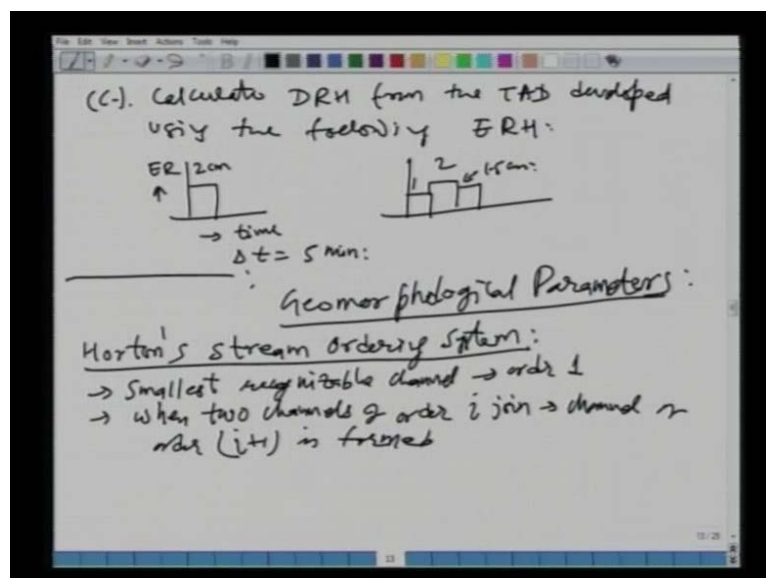 File Edit View Insert Actions Tools Help
(C-). Calculate DRH from the TAD developed
using the following ERH:
ER 2cm
1 2 1.5 cm:
→ time
Δt = 5 min:
Geomorphological Parameters:
Horton's stream ordering system:
→ Smallest recognizable channel → order 1
→ when two channels of order i join → channel of
order (i+1) is formed
13/25
13